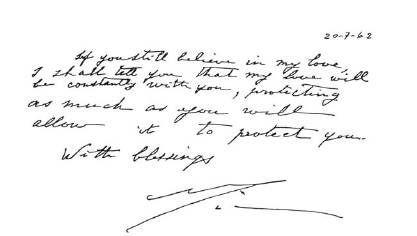 20-7-62
If you still believe in my love,
I shall tell you that my love will
be constantly with you, protecting
as much as you will
allow it to protect you.
With blessings